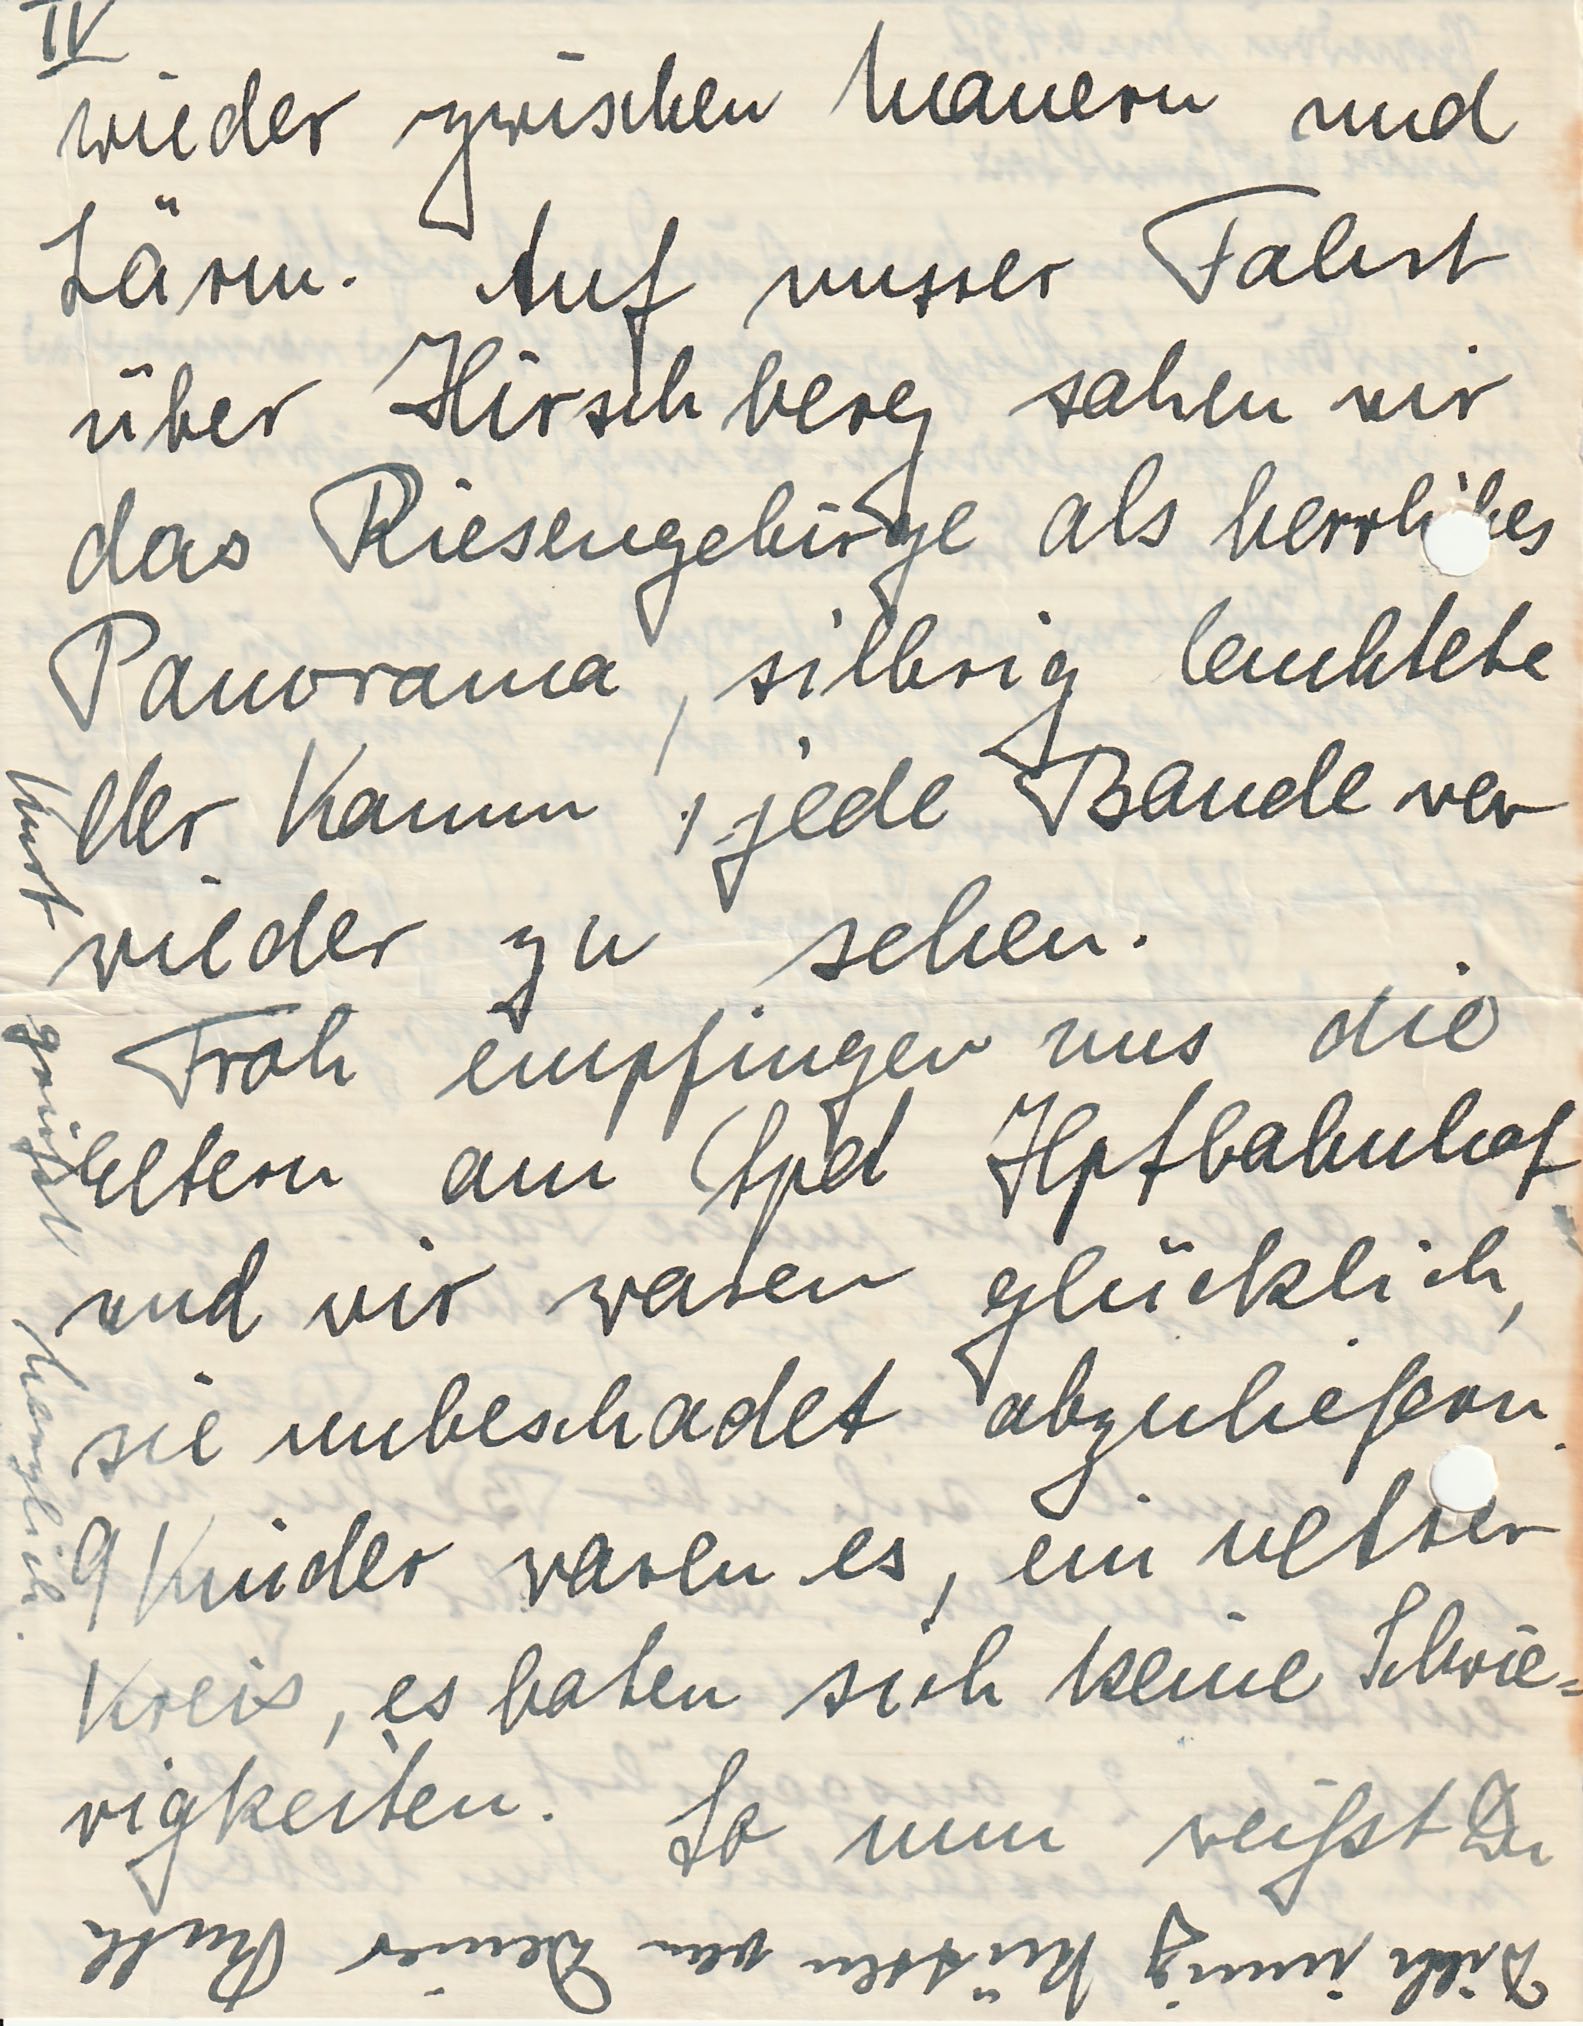 IV
wieder zwischen Mauern und
Lärm. Auf unsrer Fahrt
über Hirschberg sahen wir
das Riesengebirge als herrliches
Panorama, silbrig leuchtete
der Kamm, jede Baude
wieder zu sehen.
Froh empfingen uns die
Eltern am Hptbahnhof
und wir waren glücklich,
sie unbeschadet abzuliefern.
9 Kinder waren es, ein netter
Kreis, es boten sich keine Schwie=
rigkeiten. So nun weißt Du
Dich innig küssen von Deiner Ruth
Kurt grüßt herzlich.